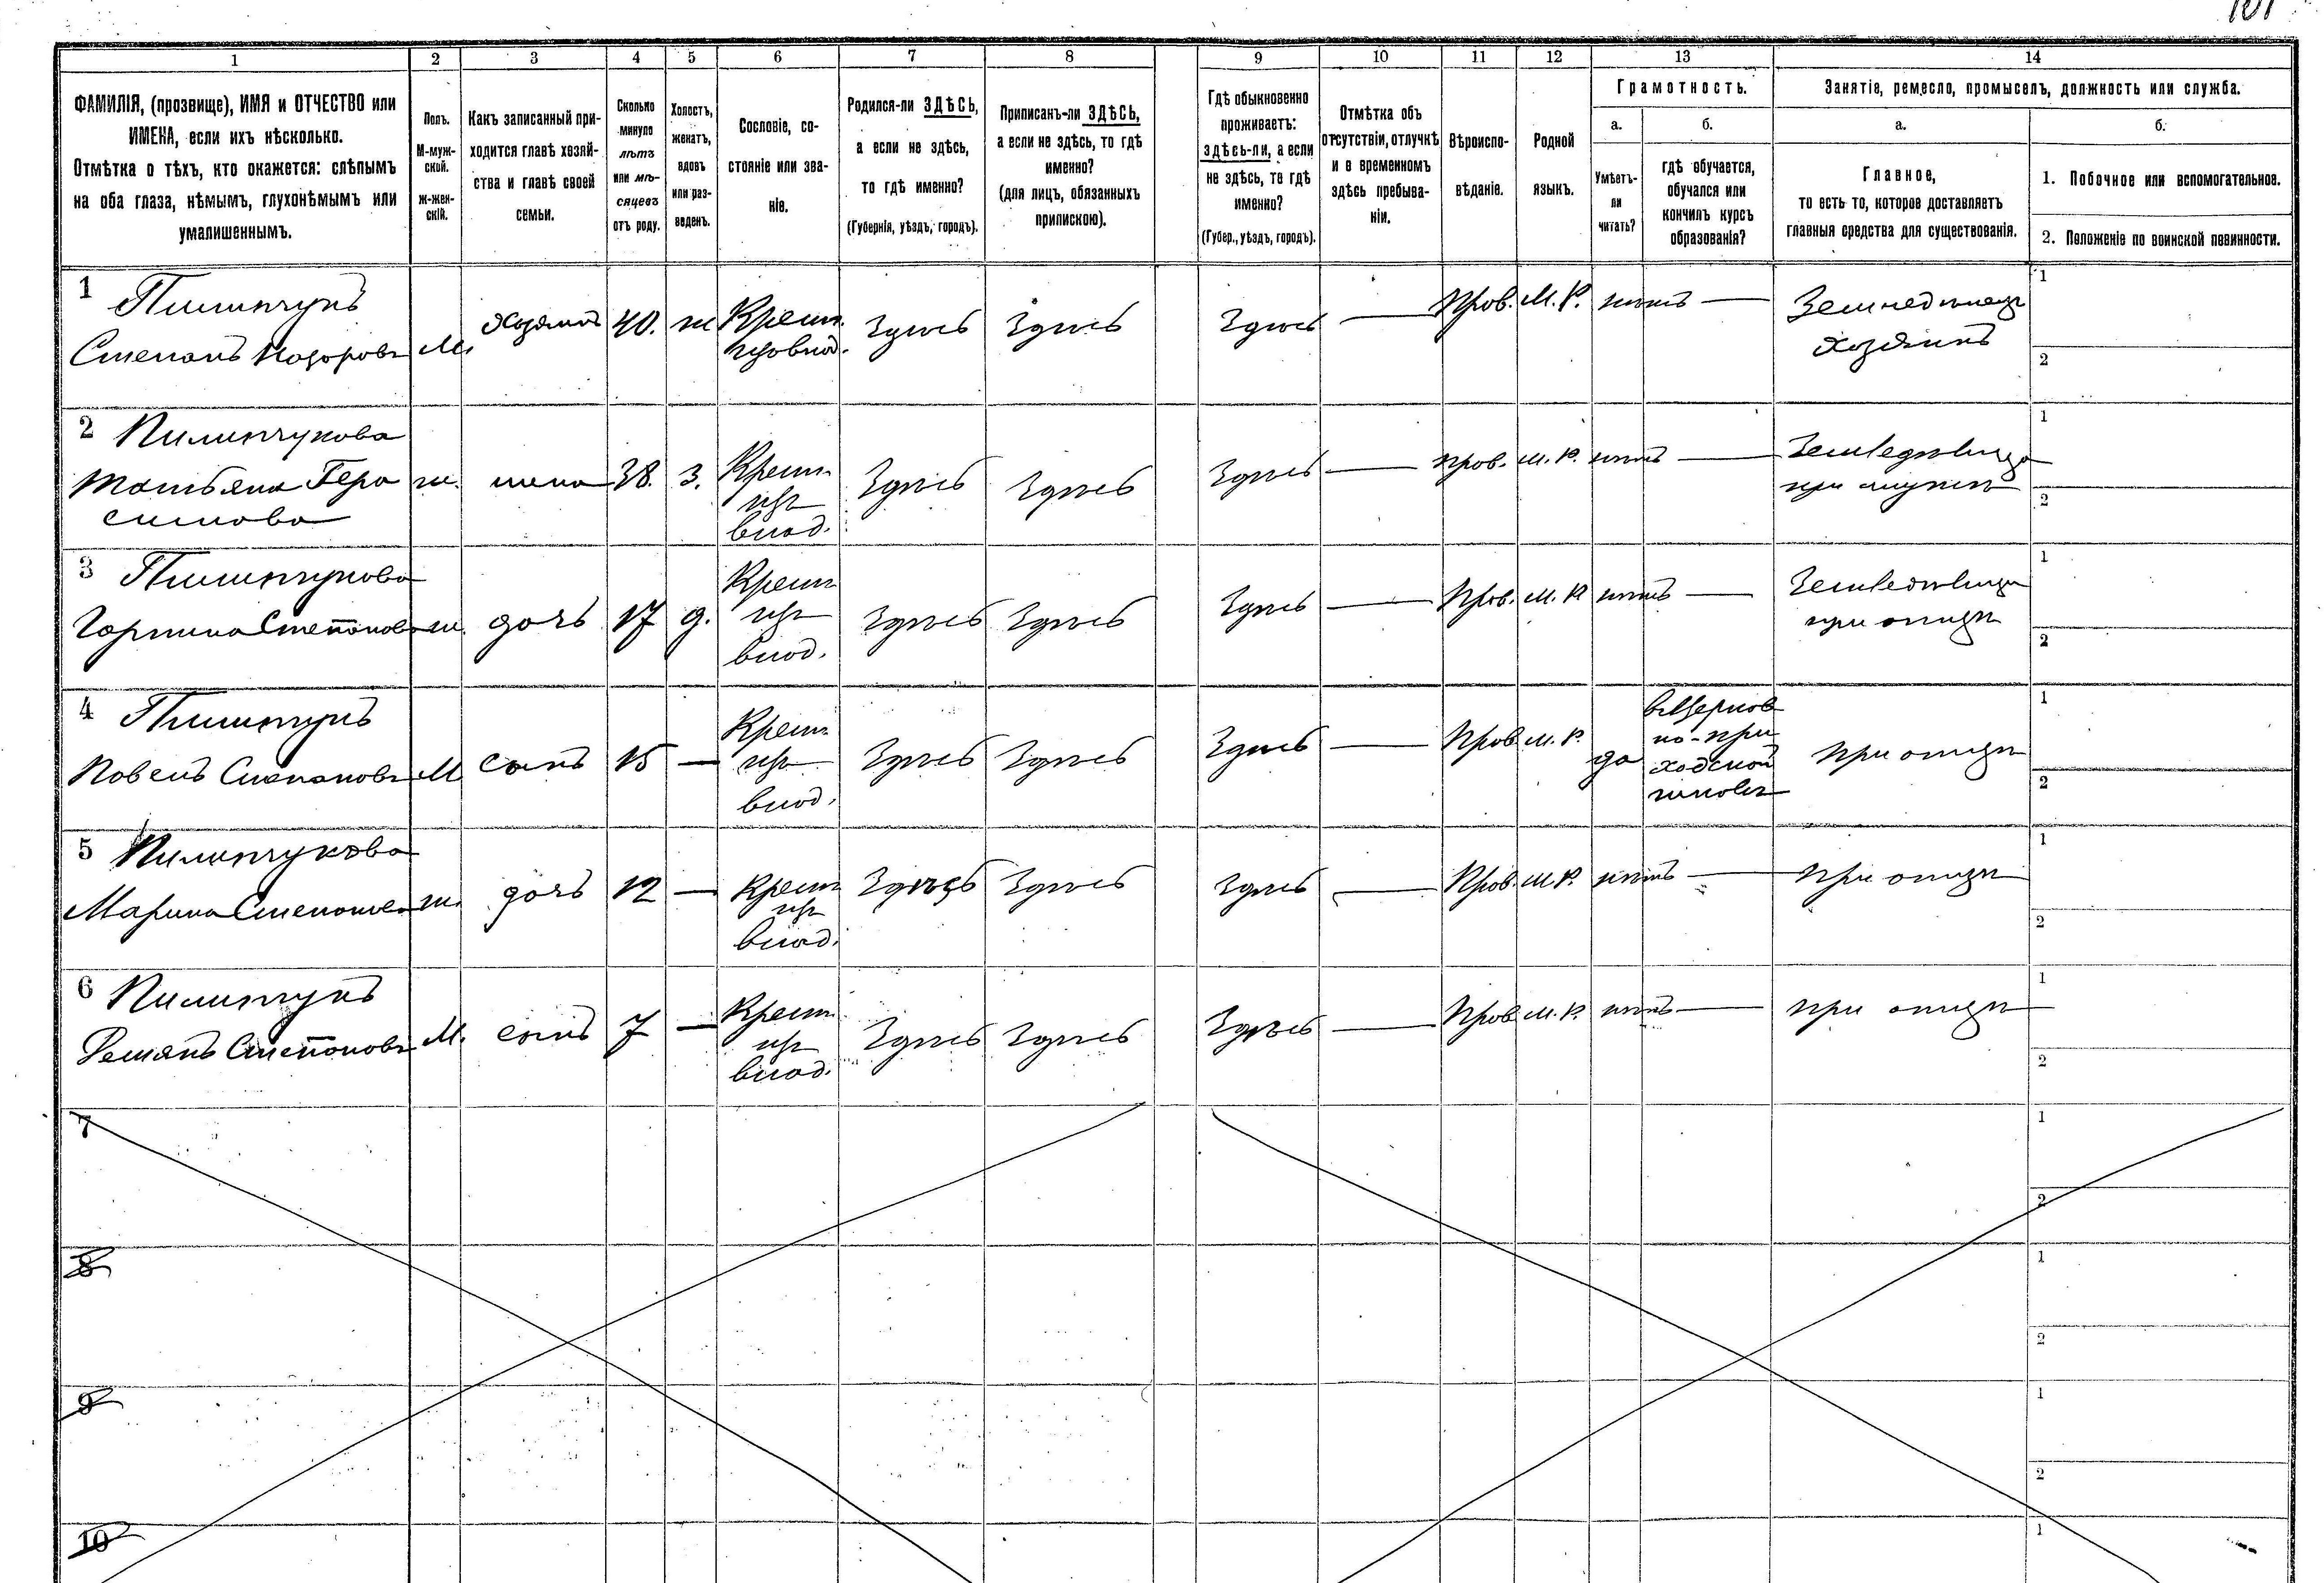 101
1 2 3 4 5 6 7 8 9 10 11 12 13 14
ФАМИЛІЯ, (прозвище), ИМЯ и ОТЧЕСТВО или
ИМЕНА, если ихъ нѣсколько.
Отмѣтка о тѣхъ, кто окажется: слѣпымъ
на оба глаза, нѣмымъ, глухонѣмымъ или
умалишеннымъ.
Полъ.
М-муж-
ской.
ж-жен-
скій.
Какъ записанный при-
ходится главѣ хозяй-
ства и главѣ своей
семьи.
Сколько
минуло
лѣтъ
или мѣ-
сяцевъ
отъ роду.
Холостъ,
женатъ,
вдовъ
или раз-
веденъ.
Сословіе, со-
стояніе или зва-
ніе.
Родился-ли ЗДѢСЬ,
а если не здѣсь,
то гдѣ именно?
(Губернія, уѣздъ, городъ).
Приписанъ-ли ЗДѢСЬ,
а если не здѣсь, то гдѣ
именно?
(для лицъ, обязанныхъ
припискою).
Гдѣ обыкновенно
проживаетъ:
здѣсь-ли, а если
не здѣсь, то гдѣ
именно?
(Губер., уѣздъ, городъ).
Отмѣтка объ
отсутствіи, отлучкѣ
и о временномъ
здѣсь пребыва-
ніи.
Вѣроиспо-
вѣданіе.
Родной
языкъ.
Грамотность.
а.
Умѣетъ-
ли
читать?
б.
гдѣ обучается,
обучался или
кончилъ курсъ
образованія?
Занятіе, ремесло, промыселъ, должность или служба.
а.
Главное,
то есть то, которое доставляетъ
главныя средства для существованія.
б.
1. Побочное или вспомогательное.
2. Положеніе по воинской повинности.
1 Пилипчукъ
Степанъ М. Хозяинъ 40. ж Крест. Здѣсь Здѣсь Здѣсь — Прав. М. Р. нѣтъ — Земледѣлец
хозяинъ
1
2
2 Пилипчукова
Татьяна Гера ж. жена 38. з. Крест. Здѣсь Здѣсь Здѣсь — прав. м. р. нѣтъ — Земледѣлица
симова влад. при мужѣ
1
2
3 Пилипчукова
Степанов ж. дочь 17 д. Крест. влад. Здѣсь Здѣсь Здѣсь — Прав. м. р нѣтъ — Земледѣлица
при отцѣ
1
2
4 Пилипчукъ
Павелъ Степановъ М сынъ 15 — Крест. влад. Здѣсь Здѣсь Здѣсь — Прав. м. р. да
въ Церков
но-при
ходской
школѣ
при отцѣ
1
2
5 Пилипчукова
Марина Степанов ж. дочь 12 — Крест. влад. Здѣсь Здѣсь Здѣсь — Прав. м. р. нѣтъ — при отцѣ
1
2
6 Пилипчукъ
Степановъ М. сынъ 7 — Крест. влад. Здѣсь Здѣсь Здѣсь — Прав. м. р. нѣтъ — при отцѣ
1
2
7
1
2
8
1
2
9
1
2
10
1